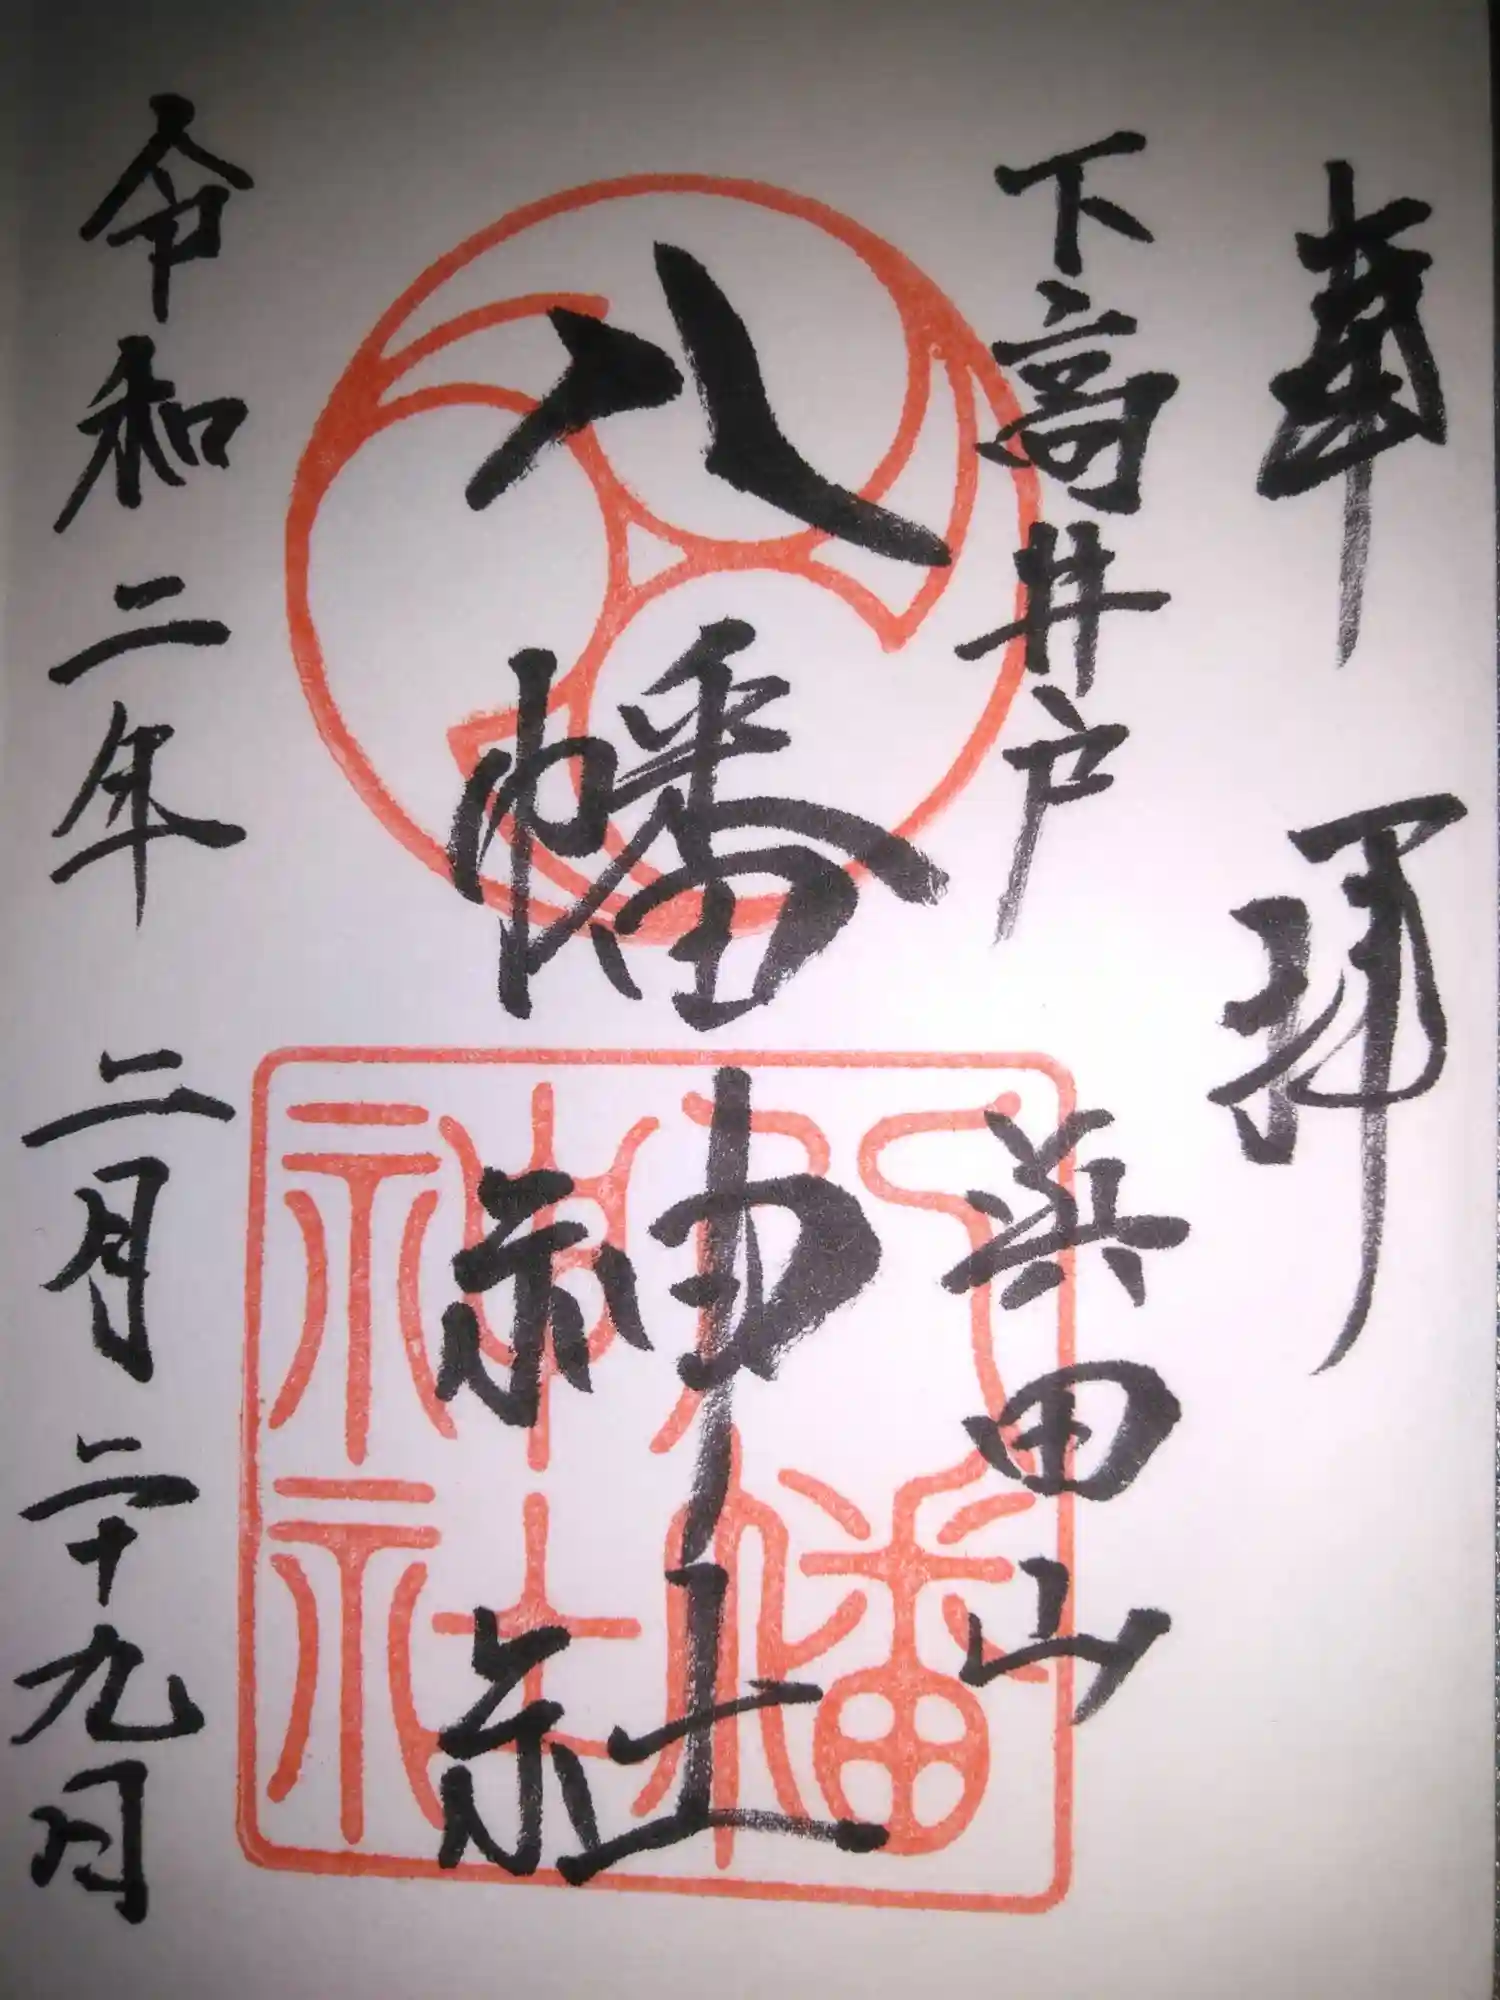 奉拝
下高井戸 浜田山
八幡神社
八幡神社
令和二年 二月二十九日